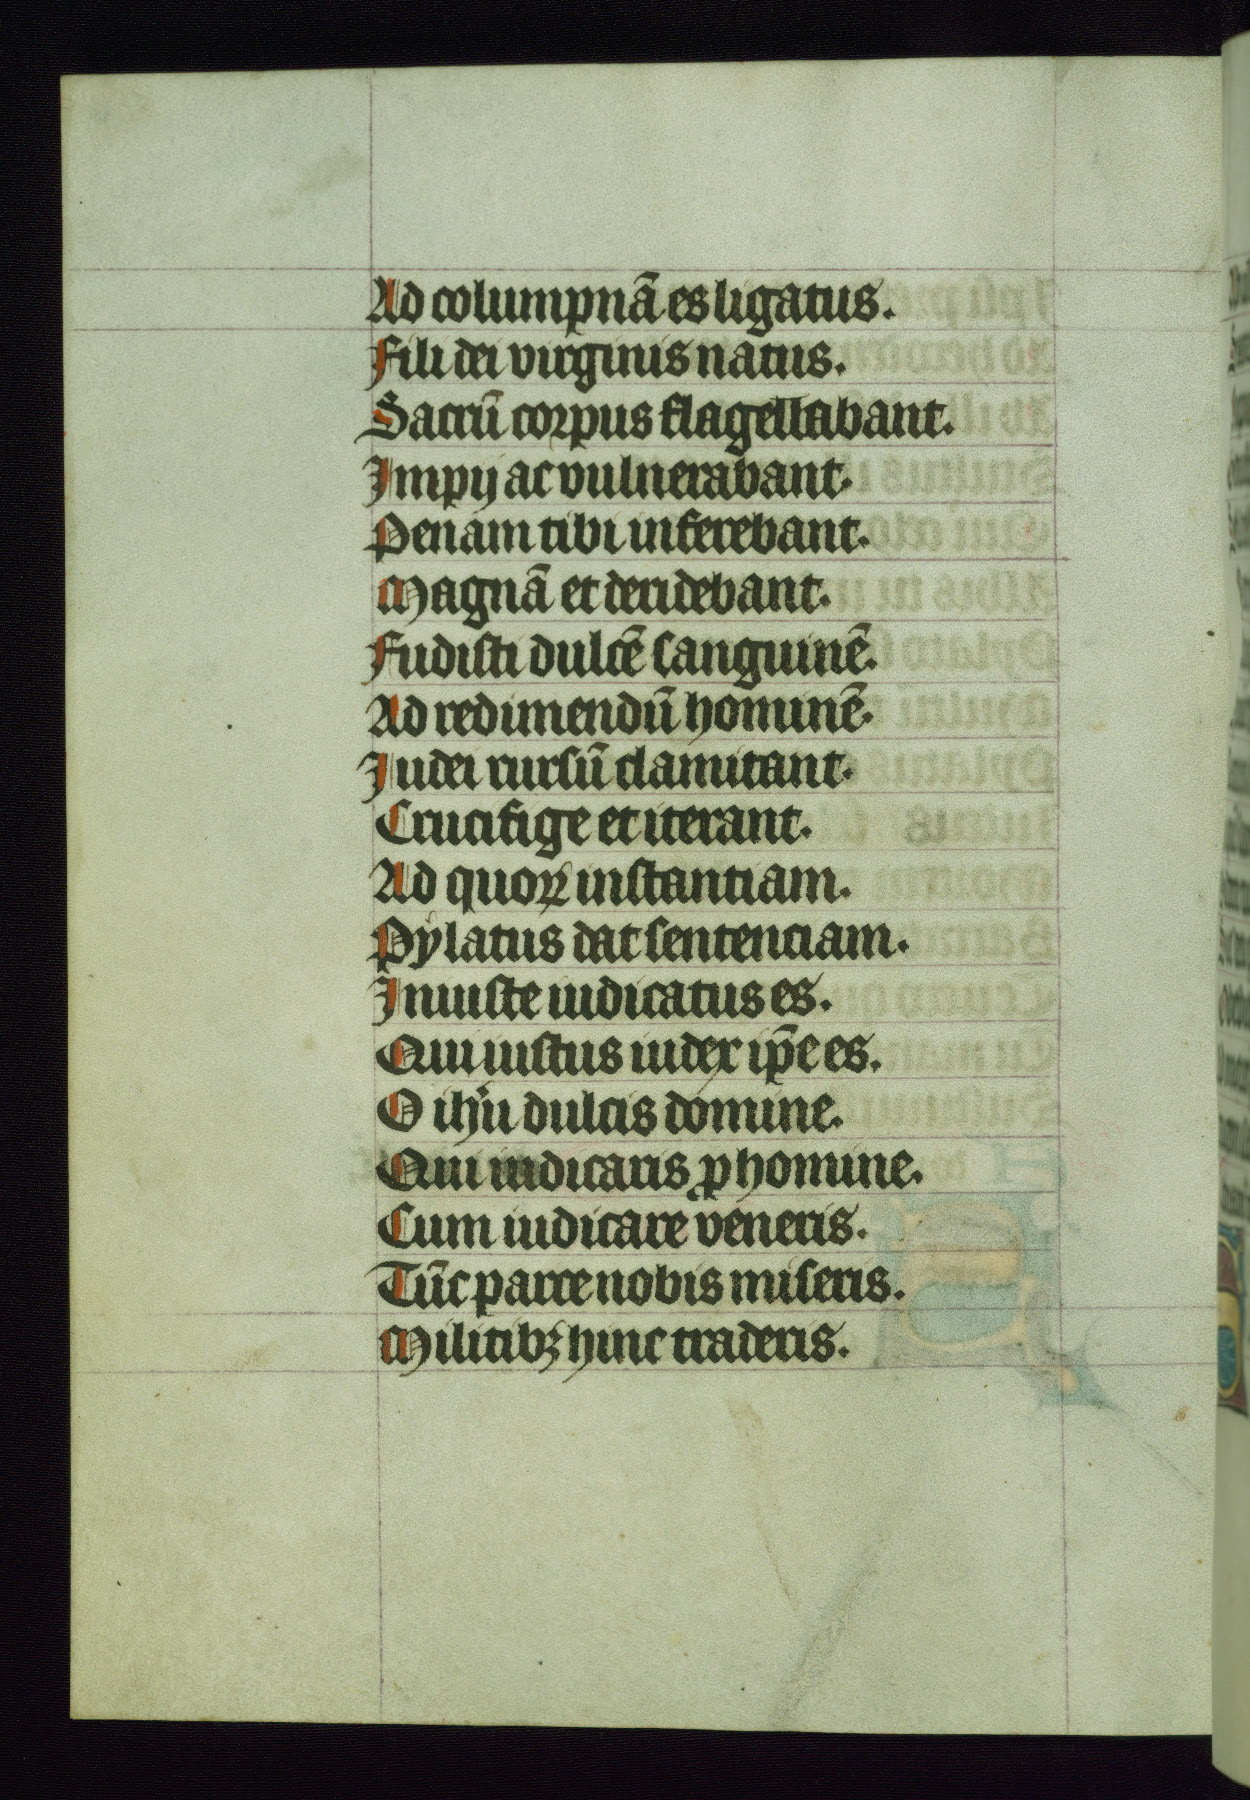 Ad columpnã es ligatus.
Fili dei virginis natus.
Sacrũ corpus flagellabant.
Impij ac vulnerabant.
Penam tibi inferebant.
Magnã et deridebant.
Fudisti dulcẽ sanguinẽ.
Ad redimendũ hominẽ.
Iudei rursũ clamitant.
Crucifige et iterant.
Ad quoꝝ instantiam.
Pylatus dat sentenciam.
Iniuste iudicatus es.
Qui iustus iudex ip̃e es.
O ih̃u dulcis domine.
Qui iudicaris ꝓ homine.
Cum iudicare veneris.
Tũc parce nobis miseris.
Militibꝫ hinc traderis.